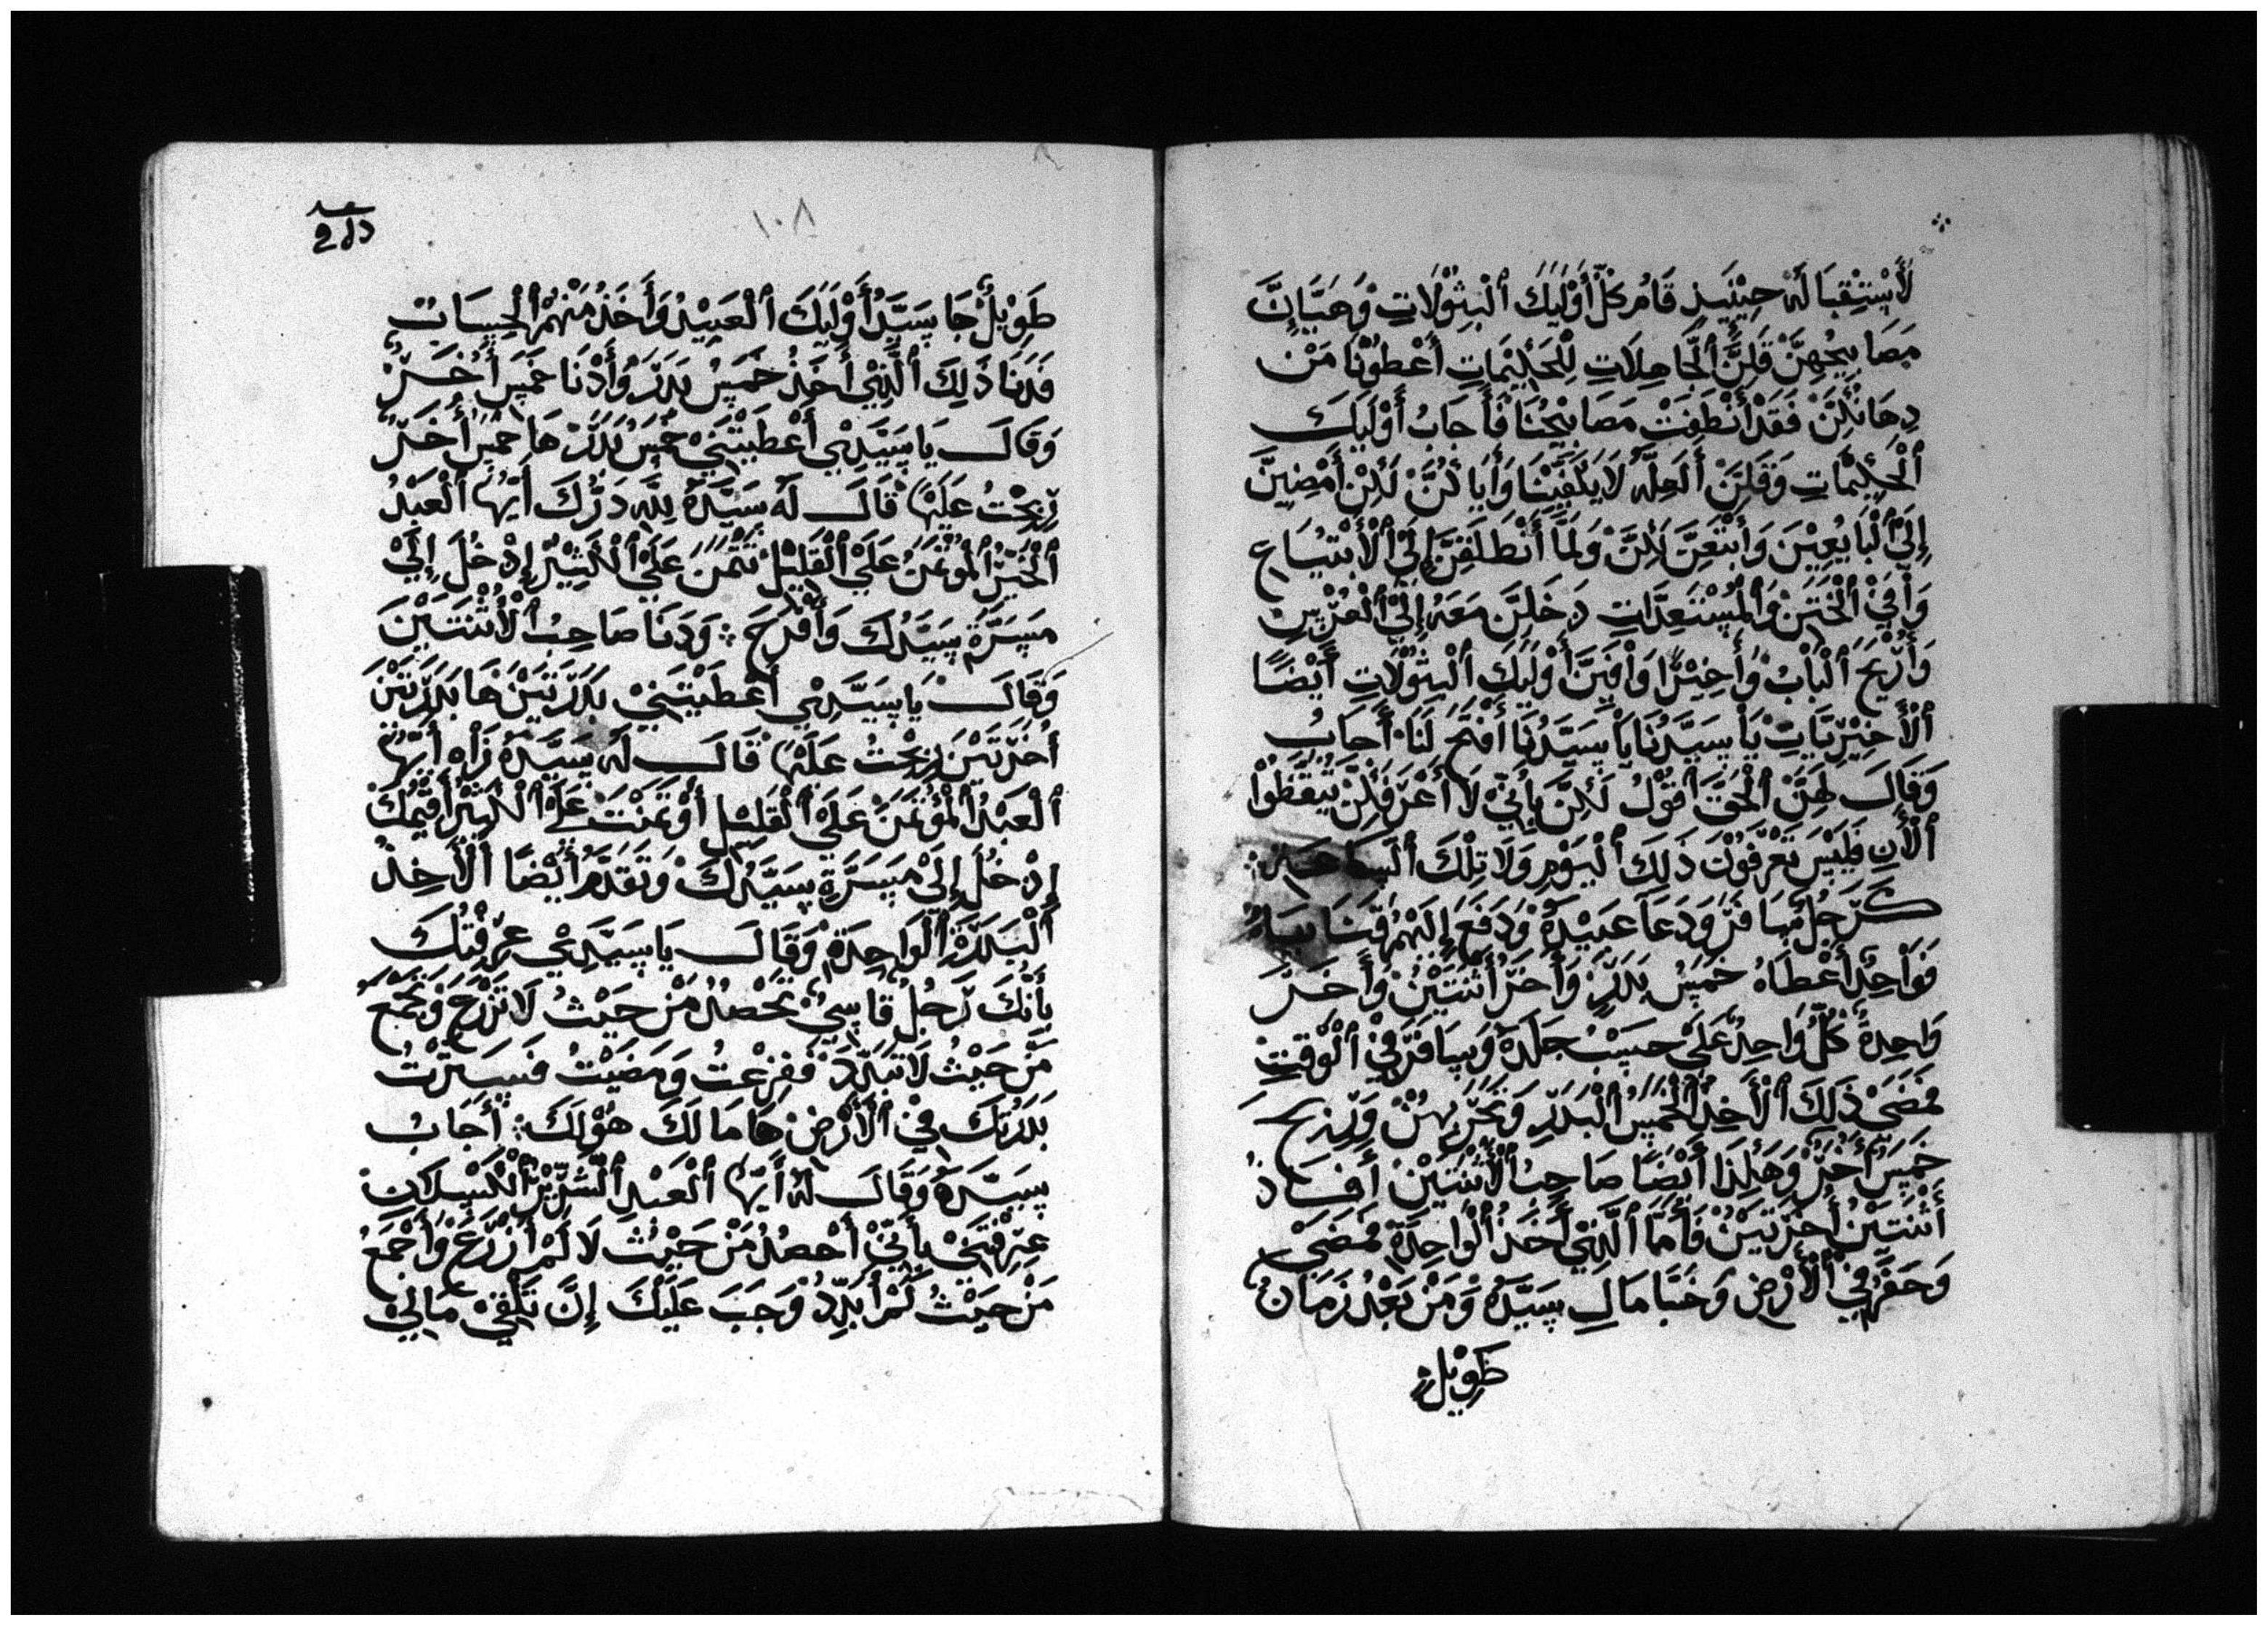 لَأَسْتِقْبَالَهْ حِيْنَيَذٍ قَامُ كلّ أَوْلَيَكَ ٱلْبِثُوْلَاتِ وَهَيَّاإِنَّ
مَصَابِيْحُهِنَّ قَلِنَّ ٱلْجَاهِلَاتِ لِلْحَكِيْمَاتِ أَعْطُوْنَا مَنْ
دِهَانُكِنْ فَقَدْ أَنْطَفِتْ مَصَابِيْحُنَا فَأَجَابُ أَوْلَيَكَ
ٱلْحَكِيْمَاتِ وَقَلِنَ أَلَعِلَّهُ لَا يَكْفِيْنَا وَأَيَاكُنَّ لَكِنْ أَمْضِيْنَ
إِلَيْ ٱلْبَايُعِيْنَ وَأَبْتَعِنَّ لَكِنَّ وَلَمَّا أَنْطَلَقِنَّ إِلَيْ ٱلْأَبْتِيَاعِ
وَأَفَيْ ٱلْخَتَنْ وَٱلْمُسْتَعِدَّاتِ دَخَلِنَ مَعَهُ إِلَيْ ٱلْعُرْسِ
وَأُرْتِجَ ٱلْبَابُ وَأَخِيْرًا وَأَفِيَنَّ أَوْلَيَكَ ٱلْبِثُوْلَاتِ أَيْضًا
ٱلْأَخِيْرِيَّاتِ يَا سَيِّدُنَا يَا سَيِّدُنَا أَفْتَحَ لَنَا أَجَابُ
وَقَالَ لَهِنَّ ٱلْحَقَّ أَقُوْلُ لَكِنَّ بِأَنِّيْ لَا أَعْرَفَكِنَّ تَيَقَّظُوْا
ٱلْأَنِ فَلَيْسَ تَعْرِفُوْنَ ذَلِكَ ٱلْيَوْمِ وَلَا تِلْكَ ٱلسَاعَه
كَرَّجُلٍ سَافَرْ وَدَعَا عَبِيْدَهُ وَدَفَعَ إِلَيْهُمْ قَنْيَانَهُ
فَوَاحِدٌ أَعْطَاهُ خَمِسُ بَدَرٍ وَأَخَرْ أَثْنَتَيْنْ وَأَخَرْ
وَاحِدَةٌ كُلُّ وَاحِدٍ عَلَيْ حَسَبْ جَلَدَهُ وَسَافَرَ فِيْ ٱلْوَقِتِ
فَمَضَيْ ذَلَكَ ٱلْأَخِذْ ٱلْخَمِسُ ٱلْبَدَرِ وَتَجَّرَ بِهُنْ وَرَبِحَ
خَمِسٌ أُخَرْ وَهَكَذَا أَيْضًا صَاحِبُ ٱلْأَثْنَتَيْنْ أَفَادَ
أَثْنَتَيْنْ أُخَرْتَيْنْ فَأَمَّا ٱلَّذِيْ أَخَذَ ٱلْوَاحِدَةْ فَمَضَيْ
وَحَفَرَ فِيْ ٱلْأَرْضِ وَخَبَّا مَالِ سَيَّدَهُ وَمَنْ بَعْدُ زَمَانٍ
طَوِيْلٍ
١٠٨
طَوِيْلٌ جَا سَيَّدُ أَوْلَيَكَ ٱلْعَبِيْدُ وَأَخَذَ مَنْهُمْ ٱلْحِسَابْ
فَدَنَا ذَلِكَ ٱلَّذِيْ أَخَذْ خَمِسُ بَدَرْ وَأَدْنَا خَمِسَ أُخَرْ
وَقَالَ يَا سَيَّدِيْ أَعْطَيْتَنِيْ خَمِسُ بَدَرْ هَا خَمِسٌ أُخَرْ
رِبِحْتُ عَلَيْهَا قَالَ لَهُ سَيَّدَهُ لِلَّهِ دَرُّكَ أَيُّهَا ٱلْعَبْدُ
ٱلْخَيْرُ ٱلْمُؤْتَمَنُ عَلَيْ ٱلْقَلِيْلْ تَتْمَنْ عَلَيْ ٱلْكَثِيْرْ إِدْخُلْ إِلَيْ
مَسَرَّةْ سَيَّدُكَ وَأَفْرَحَ وَدَنَا صَاحِبُ ٱلْأَثْنَتَيْنَ
وَقَالَ يَا سَيَّدِيْ أَعْطَيْتَنِيْ بَدَرَتَيَنْ هَا بَدَرَتَيْنَ
أُخَرْتَيْنَ رِبِحْتُ عَلَيْهَا قَالَ لَهُ سَيَّدَهُ زَاهِ أَيُّهَا
ٱلْعَبْدُ ٱلْمُؤْتَمَنْ عَلَيْ ٱلْقَلِيْلِ أَوْتَمَنْتَ عَلَيْ ٱلْكَثِيْرْ أَقِيْمُكَ
إِدْخُلَ إِلَيْ مَسَرَّةِ سَيَّدُكَ وَتَقَدَّمَ أَيْضًا ٱلْأَخِذْ
ٱلْبَدَرَةْ ٱلْوَاحِدَةْ وَقَالَ يَا سَيَّدِيْ عِرِفْتُكَ
بِأَنَّكَ رَجُلٌ قَاسِيٌ تَحْصُدُ مَنْ حَيْثُ لَا تَزْرَعْ وَتَجْمَعَ
مَنْ حَيْثُ لَا تَبَدِّدَ فَفِزِعْتُ وَمَضَيْتُ فَسَتَرْتُ
بَدَرَتَكَ فِيْ ٱلْأَرْضْ هَا مَا لَكَ هَوْلَكَ أَجَابُ
سَيَّدَهُ وَقَالَ لَهُ أَيُّهَا ٱلْعَبْدِ ٱلْشِرِّيْرْ ٱلْكَسْلَانْ
عِرِفْتَنِيْ بِأَنِّيْ أَحْصُدُ مَنْ حَيْثُ لَا لَمْ أَزْرَعْ وَأَجْمَعُ
مَنْ حَيْثُ لَمْ أَبَدِّدُ وَجَبَ عَلَيْكَ إِنَّ تَلْقِيْ مَالِيْ